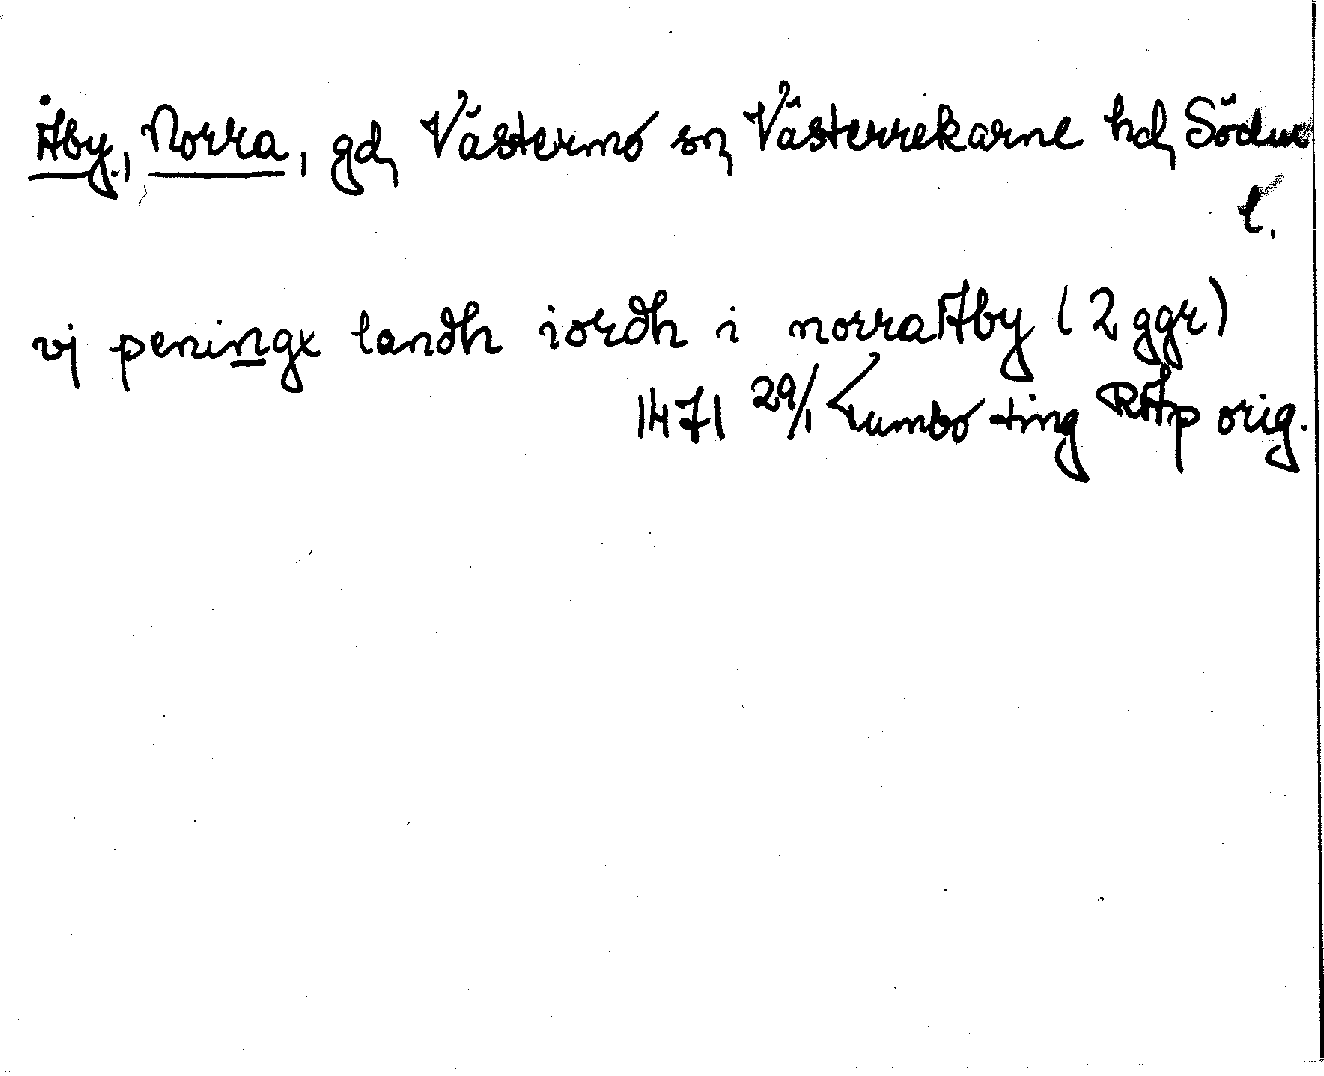 Åby, Norra, gd, Västermo sn, Västerrekarne hd, Söderm
l.
vj peningx landh iordh i norra Aby (2 ggr)
1471 29/1 Lumbo ting RAp orig.